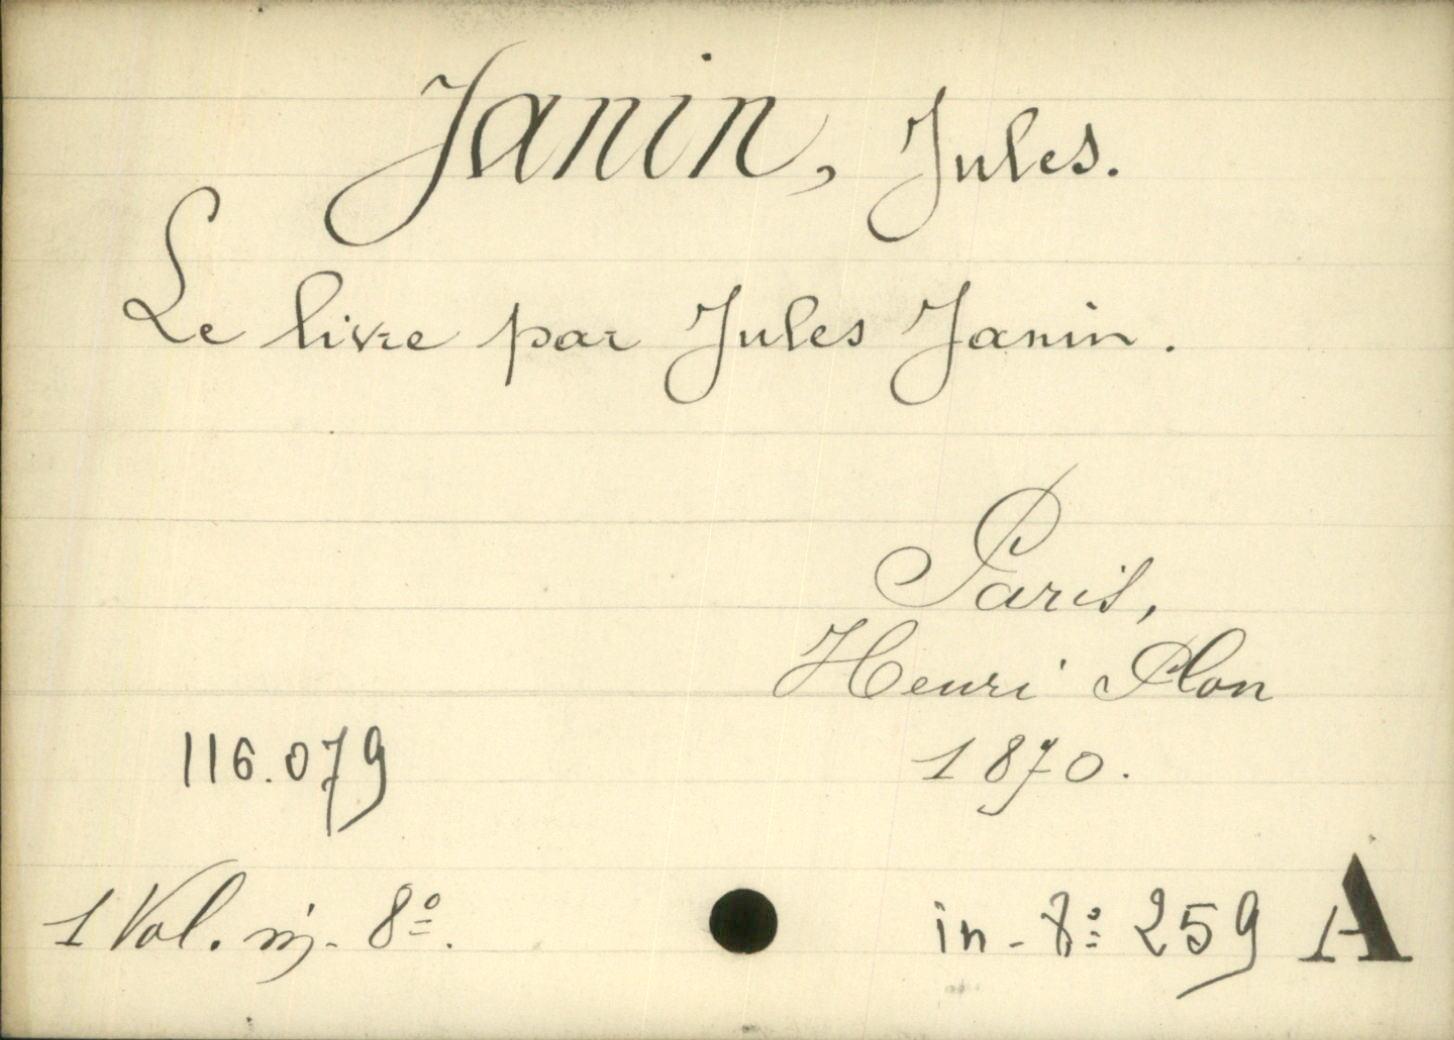 Janin, Jules.
Le livre par Jules Janin.
Paris,
Henri Plon
1870.
116.079
1 Vol. in-8º.
in-8º 259 A